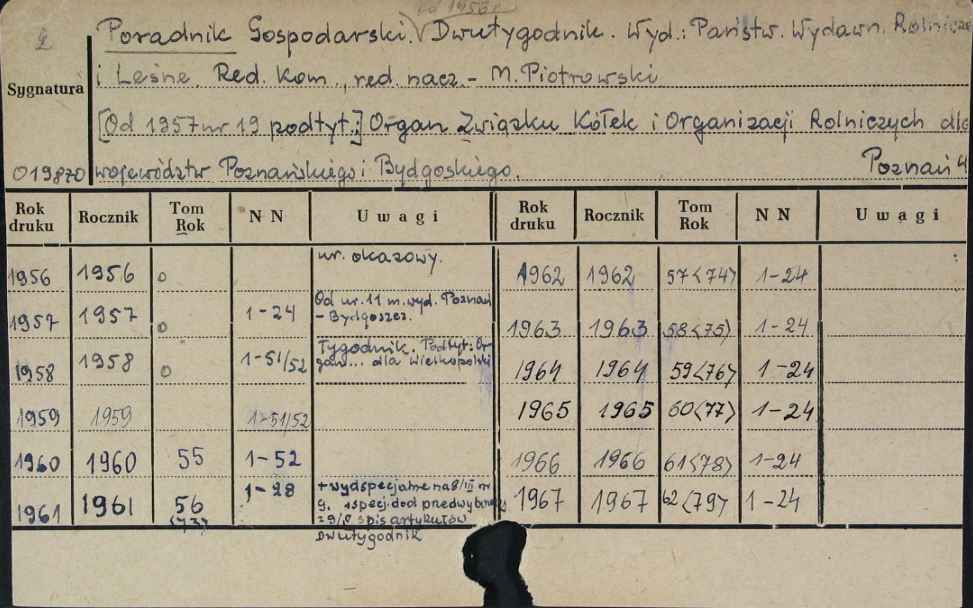 od 1956 r.
Poradnik Gospodarski. Dwutygodnik. Wyd.: Państw. Wydawn. Rolnicze
i Leśne. Red. Kom., red. nacz. - M. Piotrowski
Sygnatura
[Od 1957 nr 19 podtyt.:] Organ Związku Kółek i Organizacji Rolniczych dla
019870 województw Poznańskiego i Bydgoskiego. Poznań 4
Rok druku Rocznik Tom Rok NN Uwagi Rok druku Rocznik Tom Rok NN Uwagi
1956 1956 o nr. okazowy. 1962 1962 57<74> 1-24
1957 1957 o 1-24 Od nr. 11 m. wyd. Poznań - Bydgoszcz. 1963 1963 58<75> 1-24
1958 1958 o 1-51/52 Tygodnik. Podtyt: Organ... dla Wielkopolski 1964 1964 59<76> 1-24
1959 1959 1-51/52 1965 1965 60<77> 1-24
1960 1960 55 1-52 1966 1966 61<78> 1-24
1961 1961 56 <73> 1-28 + wyd specjalne na 8/III nr 9. 1 specj. dod przedwyborczy spis artykułów 1967 1967 62<79> 1-24
Dwutygodnik